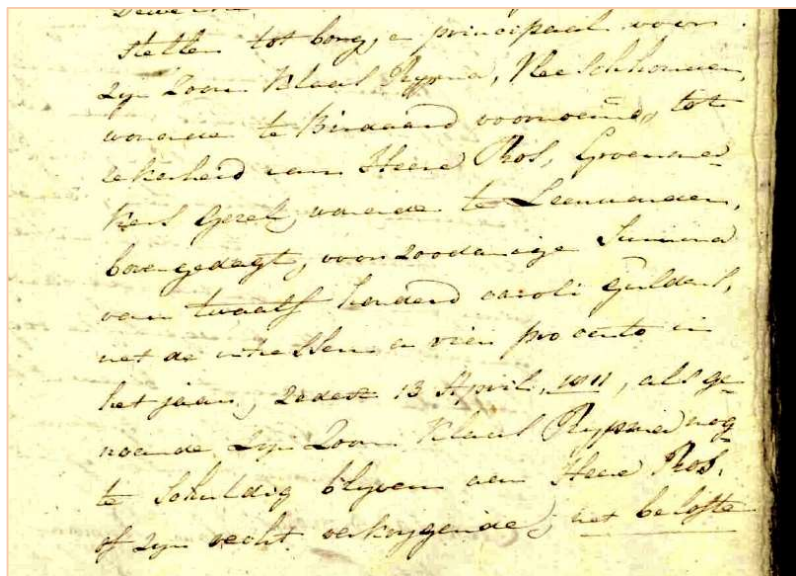 stellen tot borg, en principaal voor
zijn Zoon Klaas Rypma, Vleeschhouwer,
wonende te Birdaard voornoemd, tot
zekerheid van Heere Bos, Groenma-
kers Gezel, wonende te Leeuwarden,
bovengedagt, voor zoodanige Summa
van twaalf honderd caroli guldens,
met de intressen a vier pro cento in
het jaar, zedert 13 April, 1811, als ge-
noemde zijn Zoon Klaas Rypma nog
te schuldig blyven aan Heere Bos,
of zijn recht verkrygende, met belofte